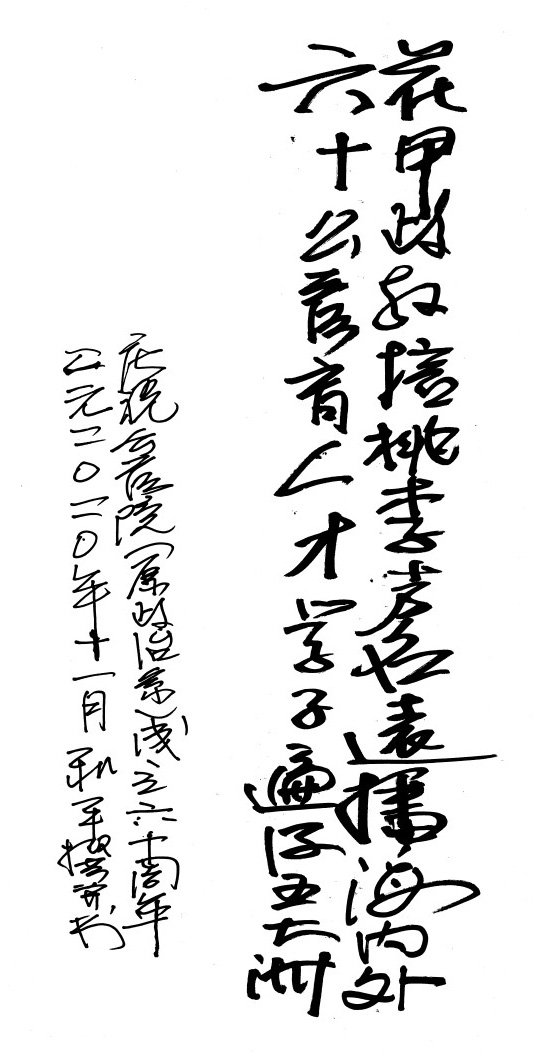 花甲政教培桃李嘉名远播海内外
六十公管育人才学子遍保五大洲
庆祝公管院(原政治系)成立六十周年
公元二〇二〇年十一月 和平撰并书